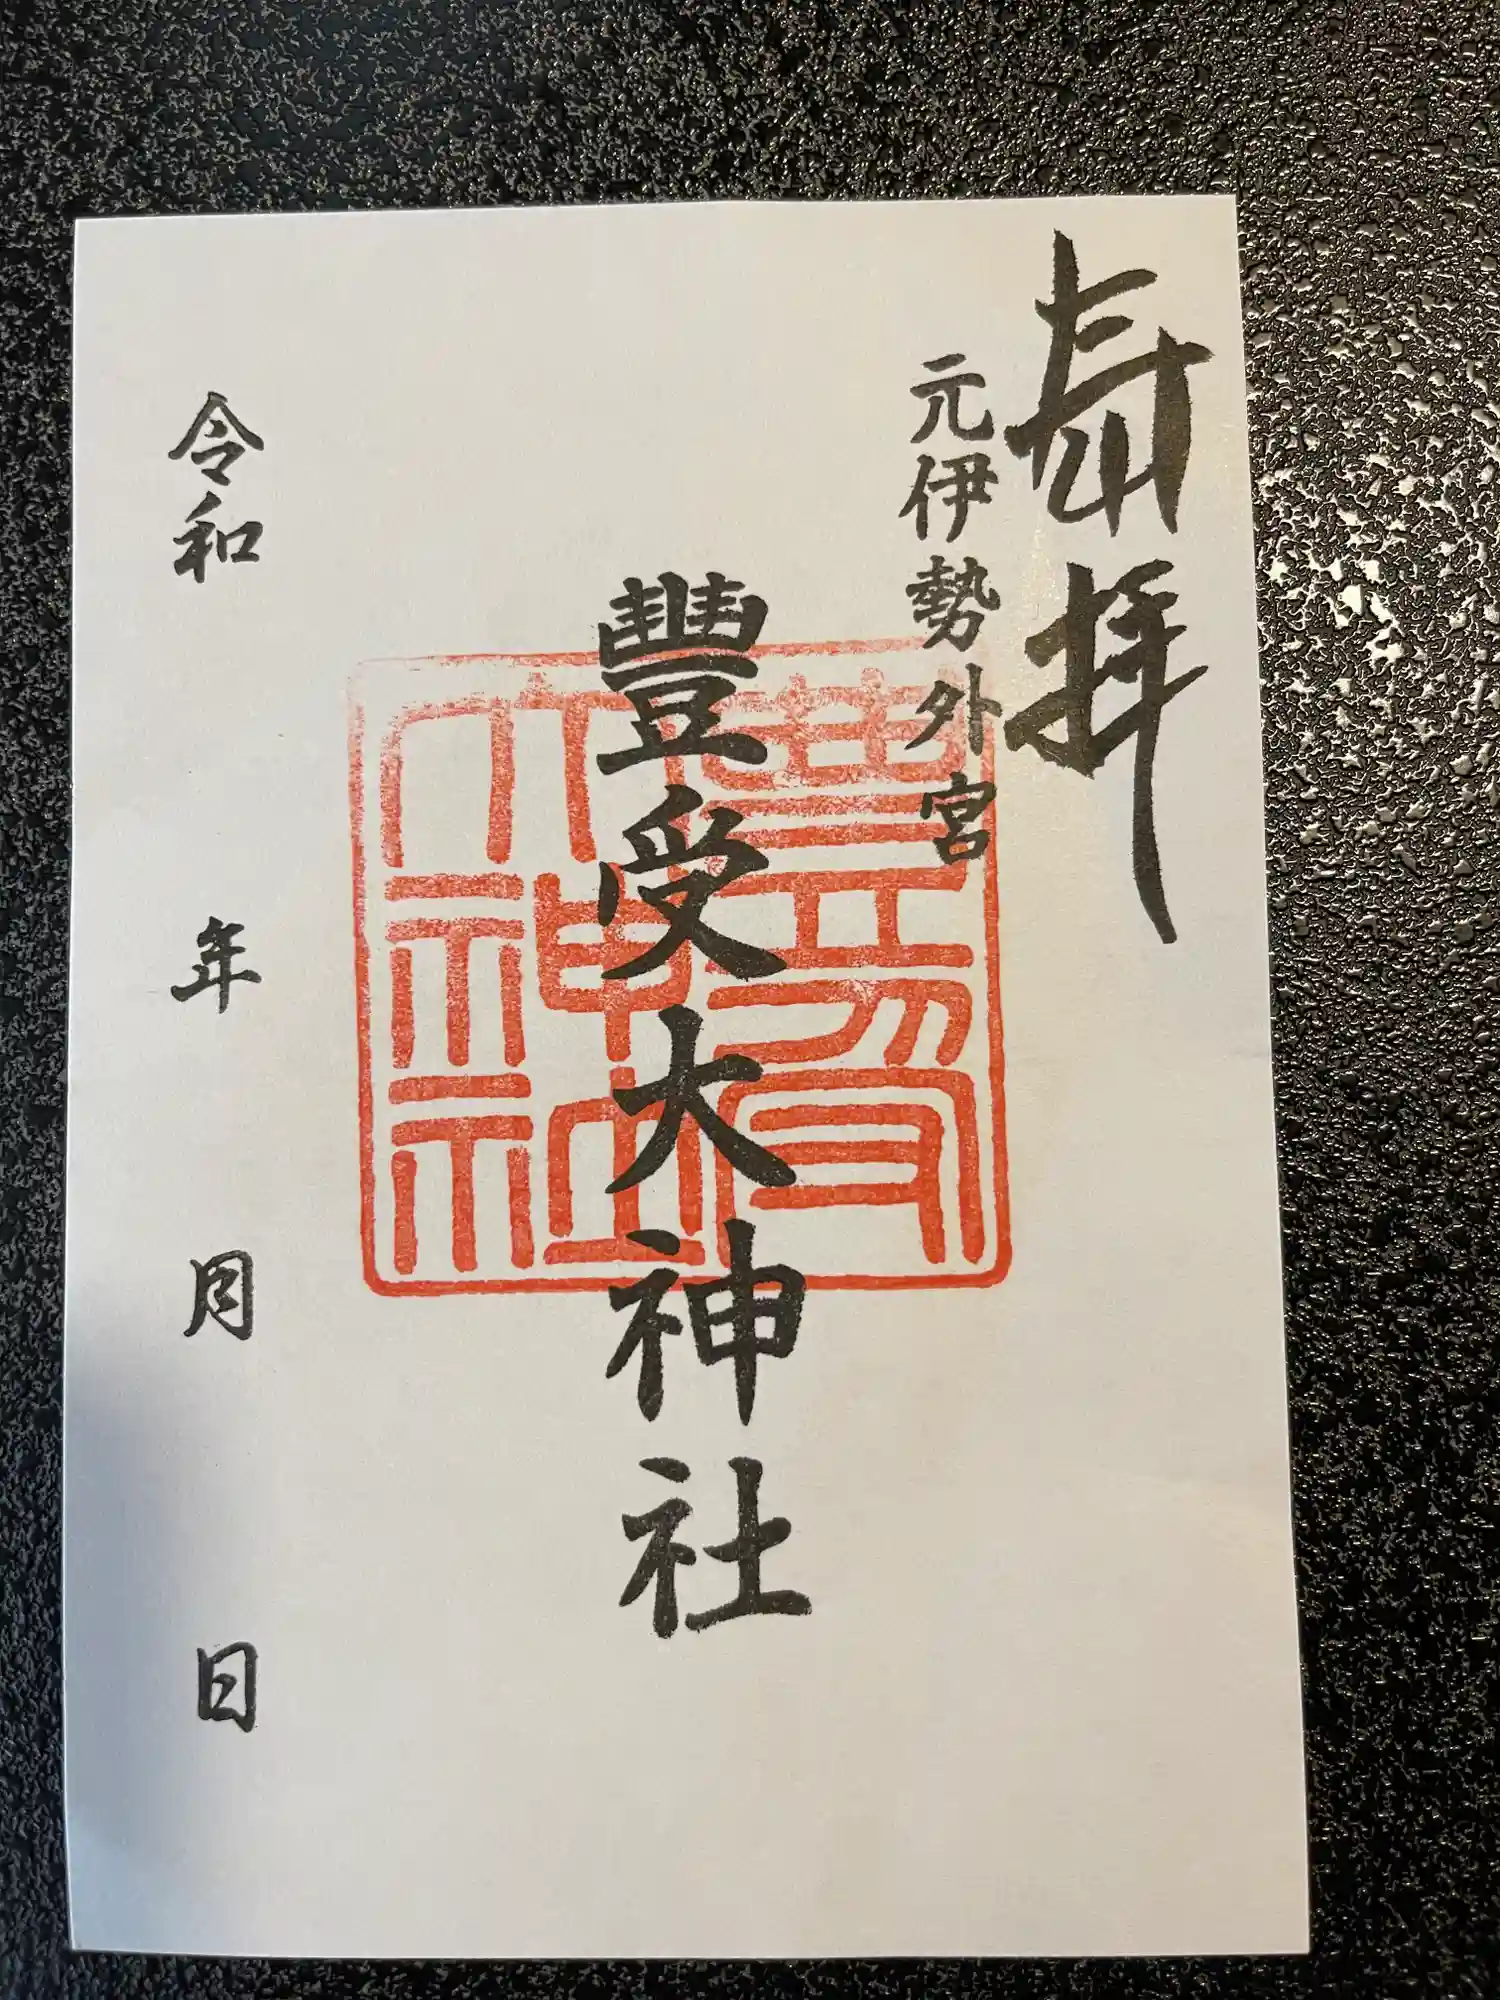 奉拝
元伊勢外宮
豐受大神社
豊受大神社
令和 年 月 日